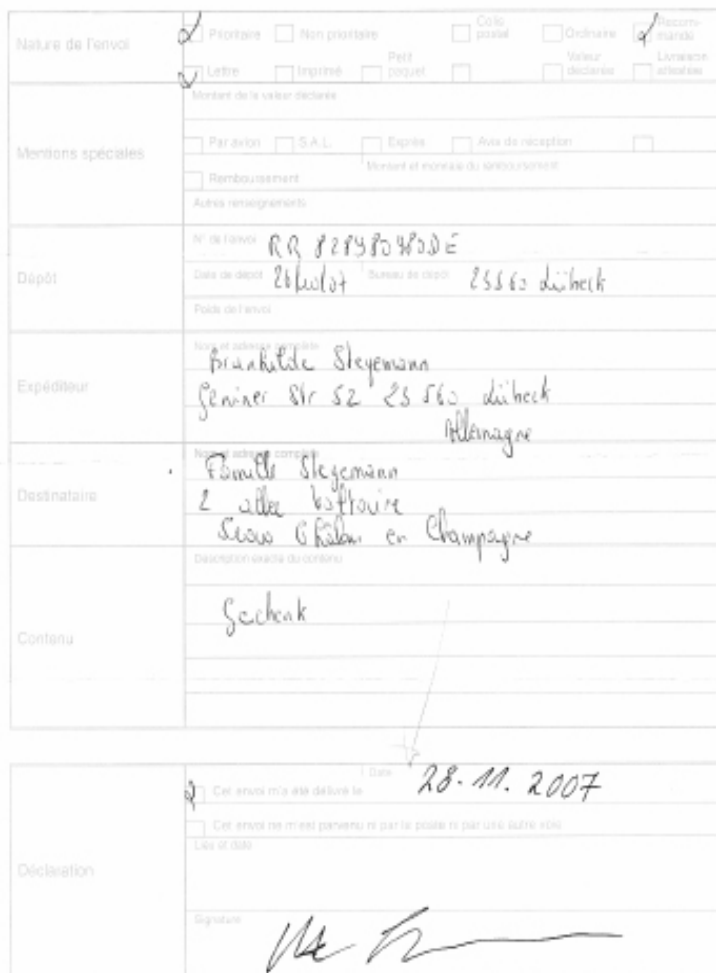 Nature de l'envoi
Prioritaire Non prioritaire Colis postal Ordinaire Recommandé
Lettre Imprimé Petit paquet Valeur déclarée Livraison attestée
Montant de la valeur déclarée
Mentions spéciales
Par avion S.A.L. Exprès Avis de réception
Remboursement Montant et monnaie du remboursement
Autres renseignements
Dépôt
N° de l'envoi RR
Date de dépôt Bureau de dépôt 23560 Lübeck
Poids de l'envoi
Expéditeur
Nom et adresse complète
Brunhilde Stegemann
Geniner Str 52 23560 Lübeck
Allemagne
Destinataire
Nom et adresse complète
Famille Stegemann
2 allée Voltaire
Châlons en Champagne
Contenu
Description exacte du contenu
Geschenk
Déclaration
Date
Cet envoi m'a été délivré le 28.11.2007
Cet envoi ne m'est parvenu ni par la poste ni par une autre voie
Lieu et date
Signature